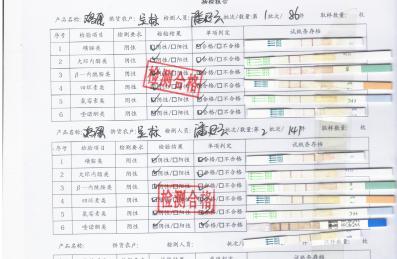 产品名称: 鸡蛋 供货农户: 检测人员: 批次/数量(第 1 批次/ 86 件 取样数量: 枚
序号 检验项目 检测要求 检验结果 单项判定 试纸条存档
1 磺胺类 阴性 ☑阴性/□阳性 ☑合格/□不合格
2 大环内酯类 阴性 ☑阴性/□阳性 ☑合格/□不合格
3 β-内酰胺类 阴性 ☑阴性/□阳性 ☑合格/□不合格
4 四环素类 阴性 ☑阴性/□阳性 ☑合格/□不合格
5 氟苯素类 阴性 ☑阴性/□阳性 ☑合格/□不合格
6 喹诺酮类 阴性 ☑阴性/□阳性 ☑合格/□不合格
检测合格
产品名称: 鸡蛋 供货农户: 检测人员: 批次/数量(第 2 批次/ 141 件 取样数量: 枚
序号 检验项目 检测要求 检验结果 单项判定 试纸条存档
1 磺胺类 阴性 ☑阴性/□阳性 ☑合格/□不合格
2 大环内酯类 阴性 ☑阴性/□阳性 ☑合格/□不合格
3 β-内酰胺类 阴性 ☑阴性/□阳性 ☑合格/□不合格
4 四环素类 阴性 ☑阴性/□阳性 ☑合格/□不合格
5 氟苯素类 阴性 ☑阴性/□阳性 ☑合格/□不合格
6 喹诺酮类 阴性 ☑阴性/□阳性 ☑合格/□不合格
检测合格
产品名称: 供货农户: 检测人员: 批次/ 取样数量: 枚